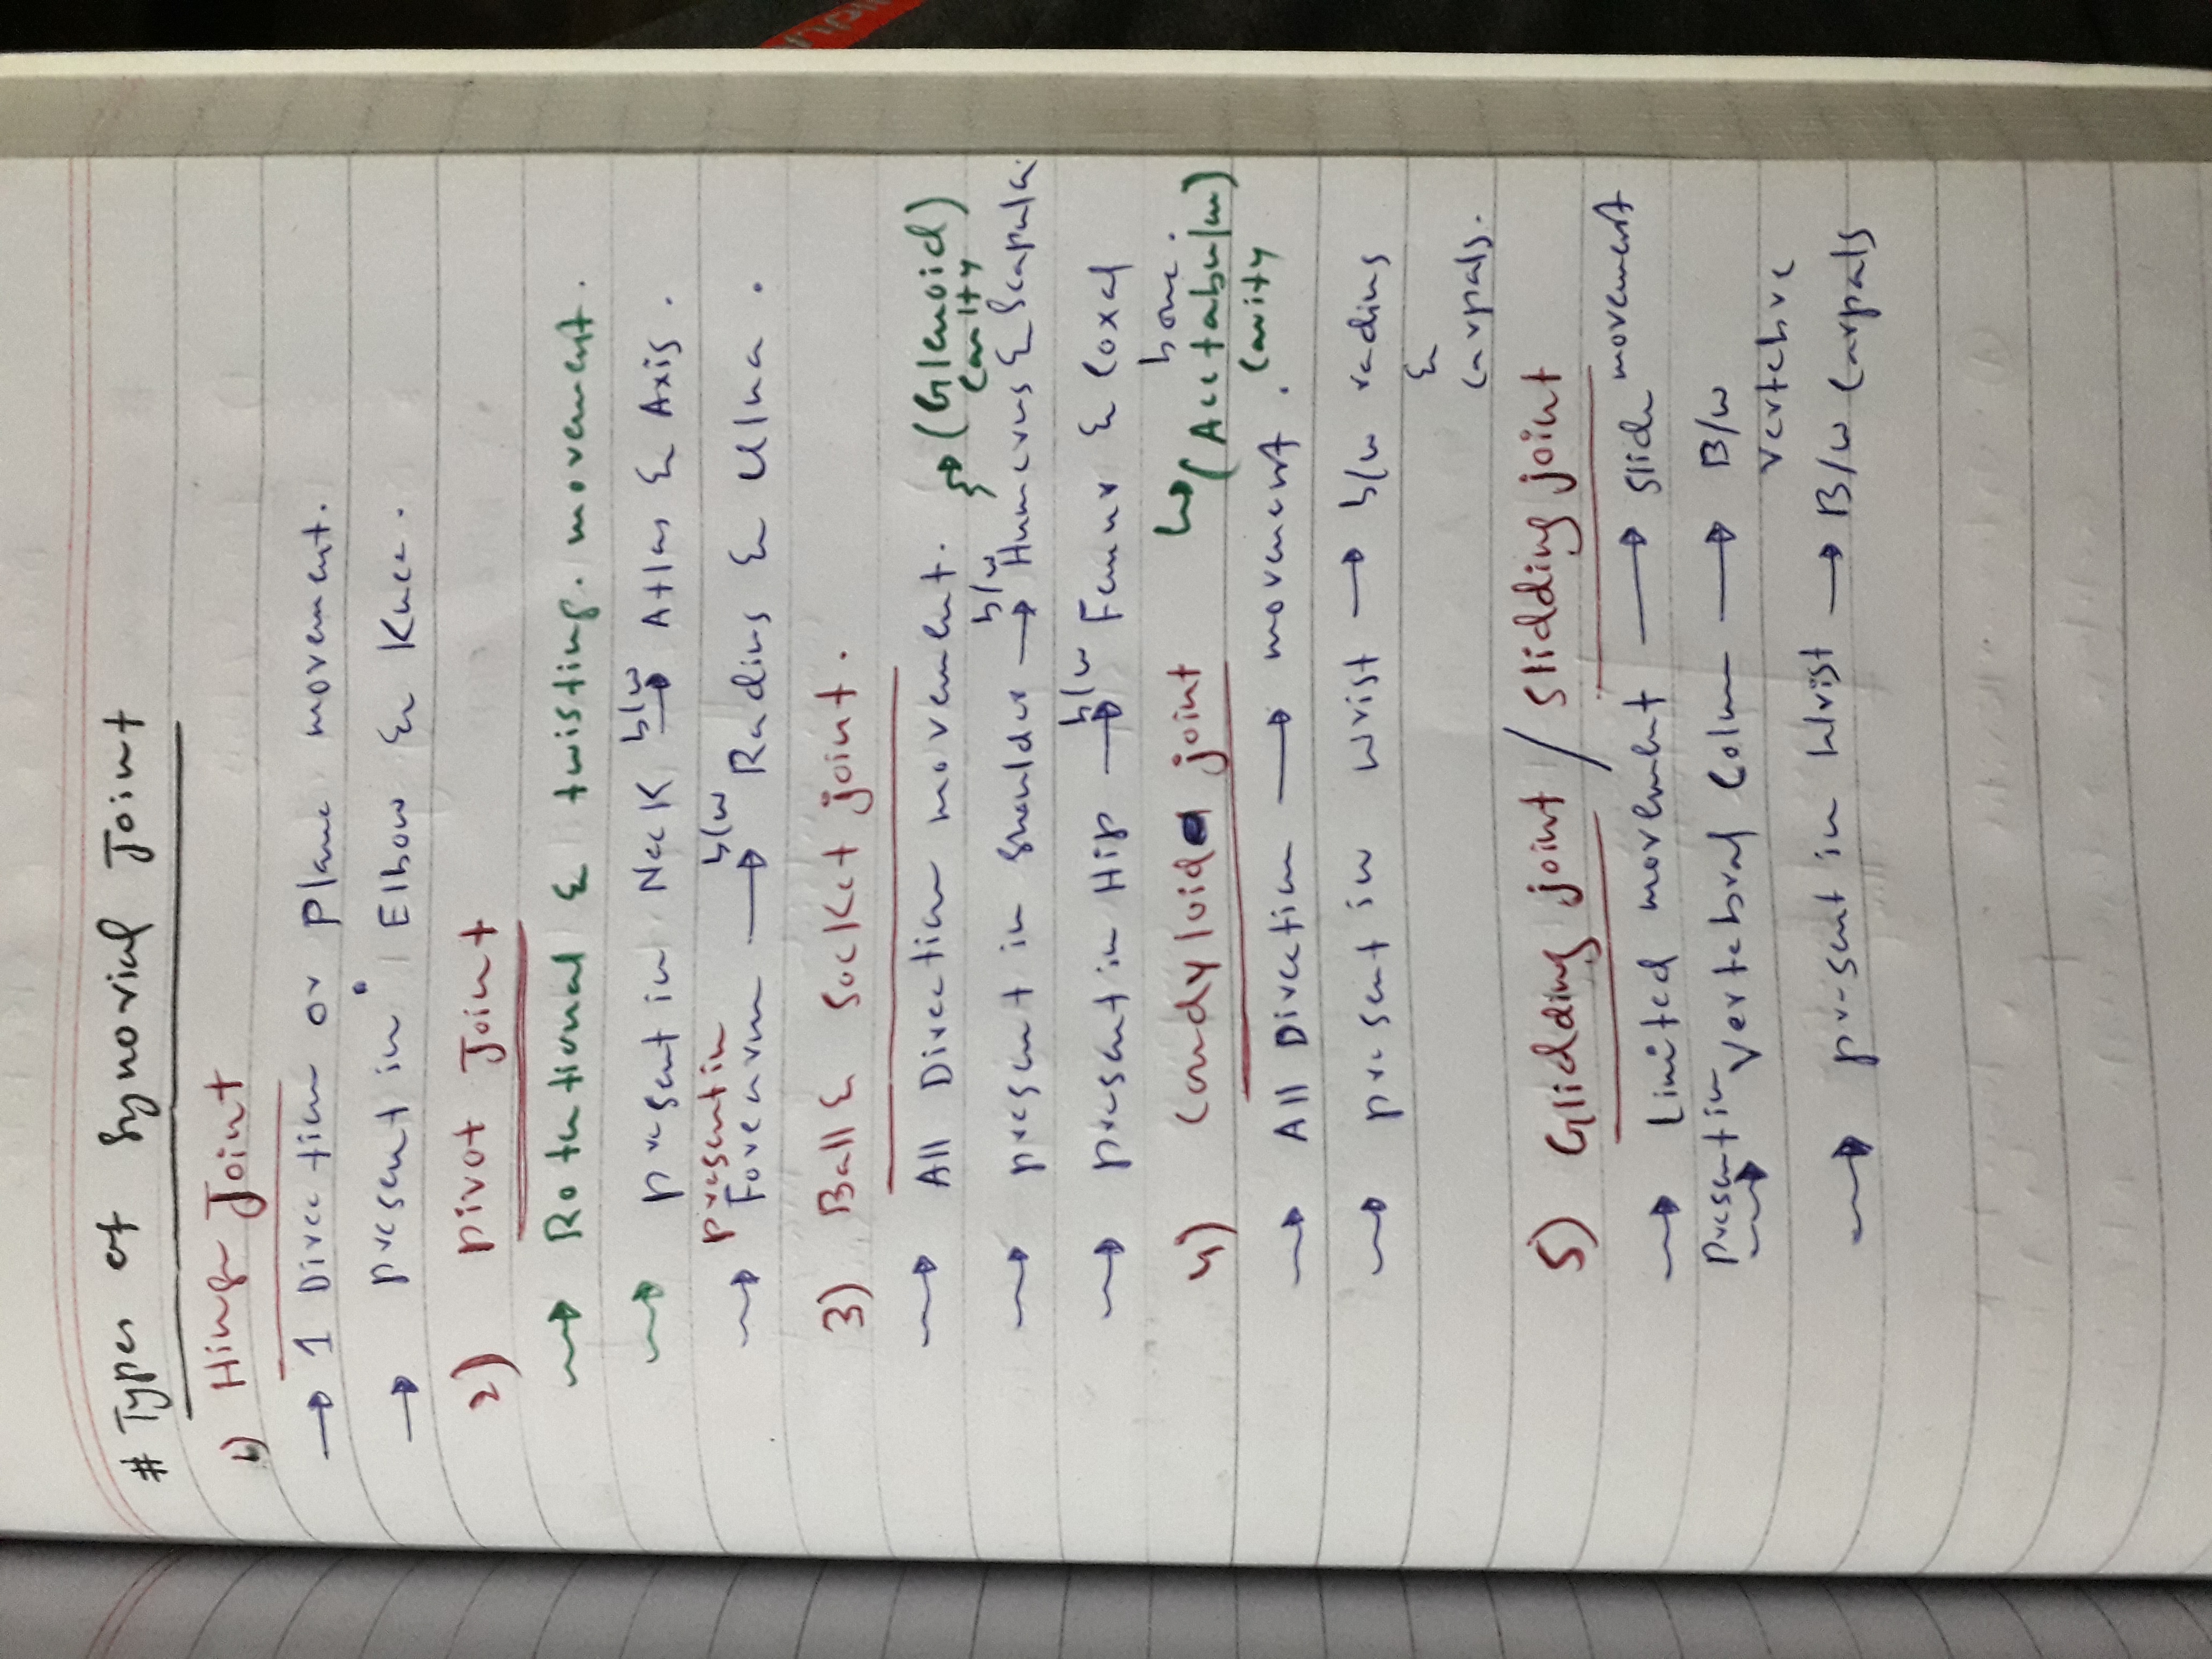 # Types of Synovial Joint
1) Hinge Joint
→ 1 Direction or Plane movement.
→ present in Elbow & Knee.
2) Pivot Joint
→ Rotational & twisting. movement.
→ present in Neck b/w → Atlas & Axis.
present in
→ Forearm → b/w Radius & Ulna.
3) Ball & Socket joint.
→ All Direction movement.
→ (Glenoid)
cavity
→ present in Shoulder b/w → Humerus & Scapula
→ present in Hip b/w → Femur & Coxal
bone.
4) Condyloid joint
↳ (Acetabulum)
Cavity
→ All Direction → movement.
→ present in Wrist → b/w radius
&
carpals.
5) Glidding joint / Slidding joint
→ Limited movement → Slide movement
Present in
→ Vertebral Column → B/w
vertebre
→ present in Wrist → B/w Carpals